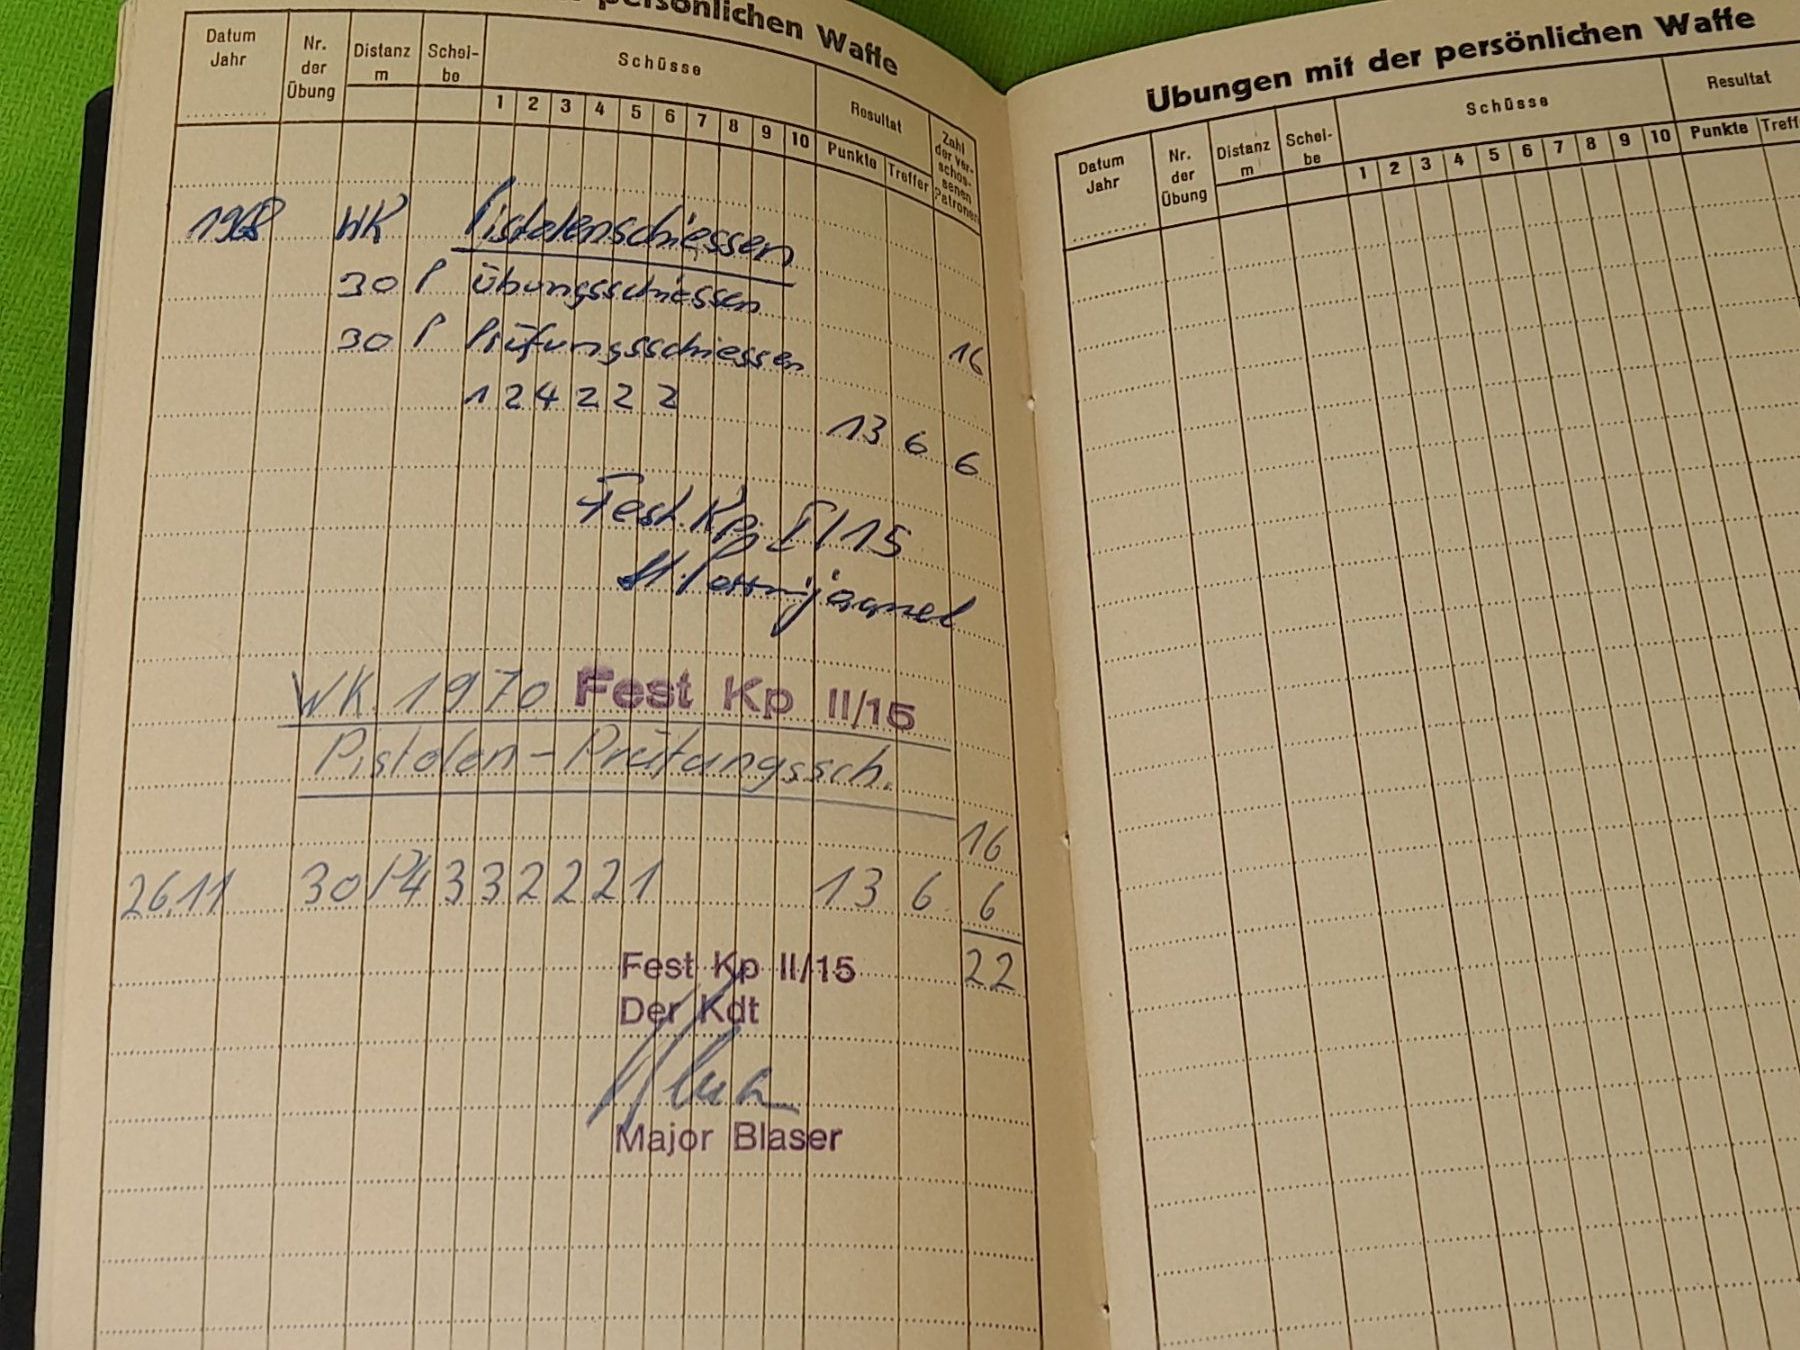 persönlichen Waffe
Datum Jahr Nr. der Übung Distanz m Schei-be Schüsse Resultat Zahl der ver-schos-senen Patronen
1 2 3 4 5 6 7 8 9 10 Punkte Treffer
1968 WK Pistolenschiessen
30 P Übungsschiessen 16
30 P Prüfungsschiessen
1 2 4 2 2 2 13 6 6
Fest Kp. I/15
WK 1970 Fest Kp II/15
Pistolen-Prüfungssch.
16
26.11 30 P4 3 3 2 2 2 1 13 6 6
22
Fest Kp II/15
Der Kdt
Major Blaser
Übungen mit der persönlichen Waffe
Datum Jahr Nr. der Übung Distanz m Schei-be Schüsse Resultat
1 2 3 4 5 6 7 8 9 10 Punkte Treff